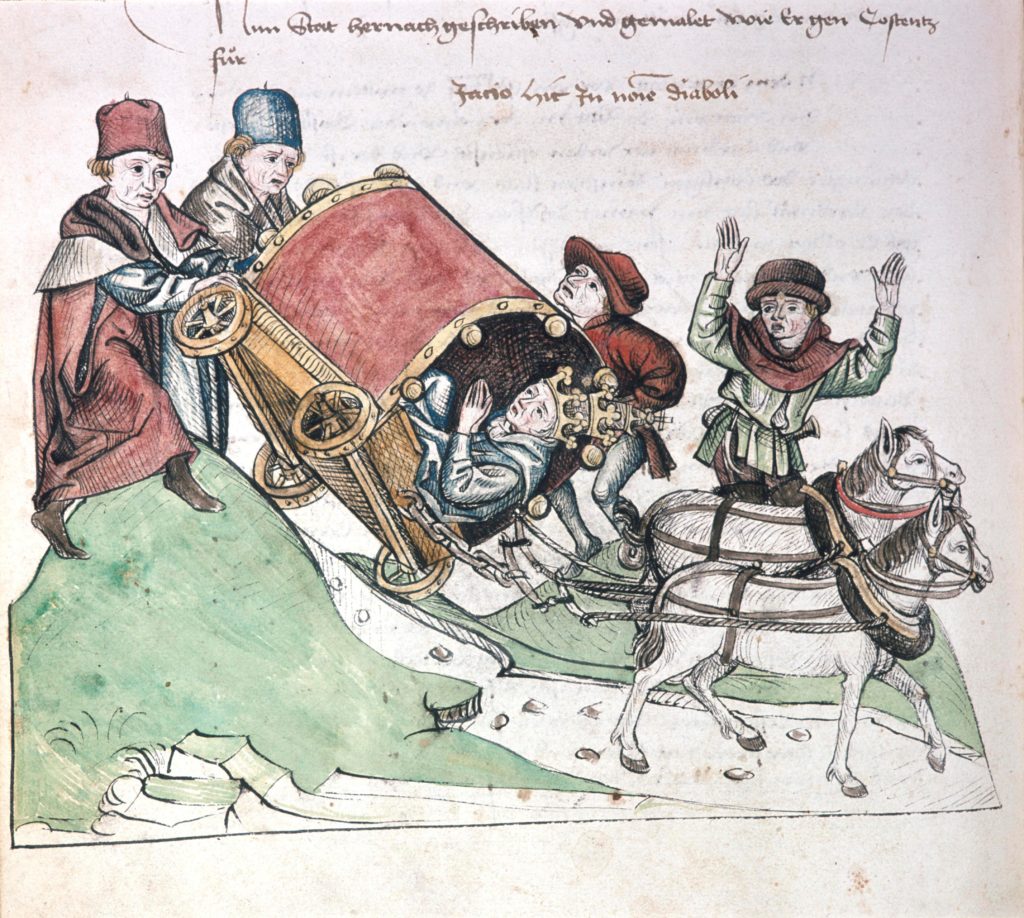 Nun Stat hernach geschriben und gemalet wie Er gen Costentz
für
Jaceo hic In noīe diaboli